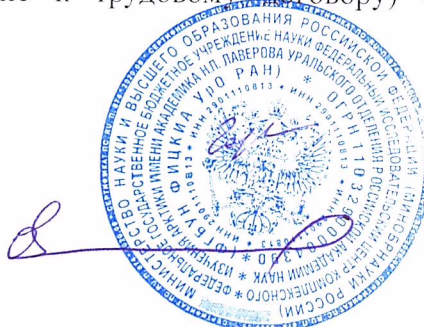 к трудовому договору)
МИНИСТЕРСТВО НАУКИ И ВЫСШЕГО ОБРАЗОВАНИЯ РОССИЙСКОЙ ФЕДЕРАЦИИ (МИНОБРНАУКИ РОССИИ)
ФЕДЕРАЛЬНОЕ ГОСУДАРСТВЕННОЕ БЮДЖЕТНОЕ УЧРЕЖДЕНИЕ НАУКИ ФЕДЕРАЛЬНЫЙ ИССЛЕДОВАТЕЛЬСКИЙ ЦЕНТР КОМПЛЕКСНОГО
ИЗУЧЕНИЯ АРКТИКИ ИМЕНИ АКАДЕМИКА Н.П. ЛАВЕРОВА УРАЛЬСКОГО ОТДЕЛЕНИЯ РОССИЙСКОЙ АКАДЕМИИ НАУК *
(ФГБУН ФИЦКИА УрО РАН) * ОГРН
* ИНН 2901110813 * ИНН 2901110813